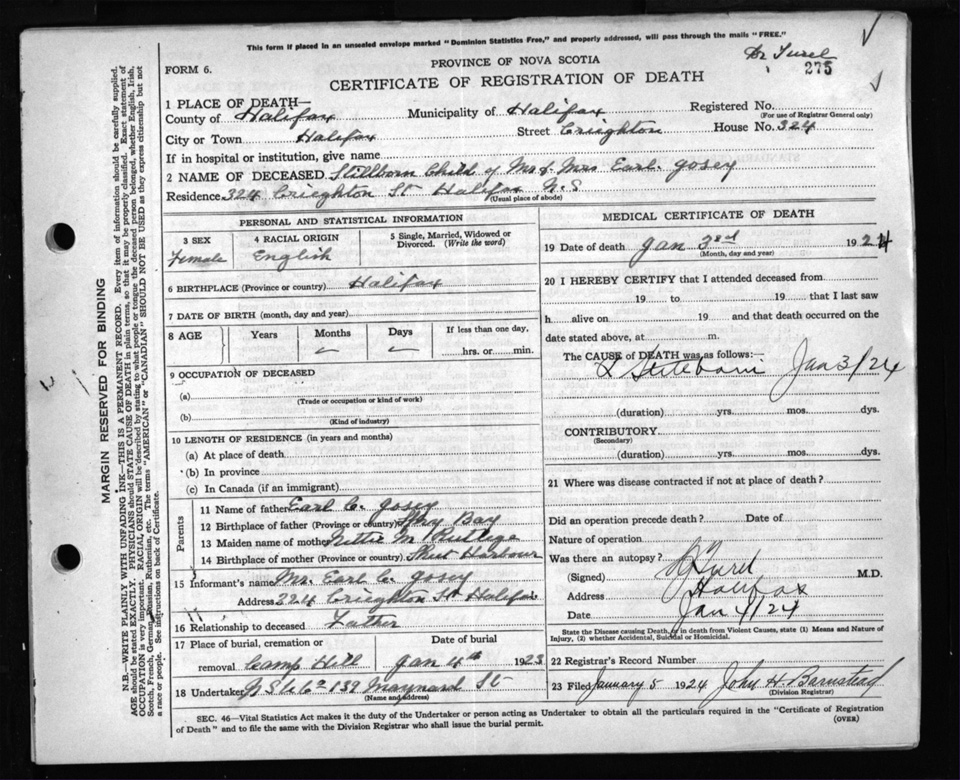 This form if placed in an unsealed envelope marked "Dominion Statistics Free," and properly addressed, will pass through the mails "FREE."
Dr Turel
275
FORM 6.
PROVINCE OF NOVA SCOTIA
CERTIFICATE OF REGISTRATION OF DEATH
1 PLACE OF DEATH—
County of Halifax Municipality of Halifax Registered No.
(For use of Registrar General only)
City or Town Halifax Street Crieghton House No. 324
If in hospital or institution, give name
2 NAME OF DECEASED Stillborn Child of Mr & Mrs Earl Gosey
Residence 324 Crieghton St Halifax N.S
(Usual place of abode)
PERSONAL AND STATISTICAL INFORMATION
3 SEX 4 RACIAL ORIGIN 5 Single, Married, Widowed or Divorced. (Write the word)
Female English
6 BIRTHPLACE (Province or country) Halifax
7 DATE OF BIRTH (month, day and year)
8 AGE Years Months Days If less than one day,
hrs. or min.
9 OCCUPATION OF DECEASED
(a)
(Trade or occupation or kind of work)
(b)
(Kind of industry)
10 LENGTH OF RESIDENCE (in years and months)
(a) At place of death
(b) In province
(c) In Canada (if an immigrant)
Parents
11 Name of father Earl C. Gosey
12 Birthplace of father (Province or country) Bay
13 Maiden name of mother Nettie M
14 Birthplace of mother (Province or country) Sheet Harbour
15 Informant's name Mr. Earl C. Gosey
Address 324 Crieghton St Halifax
16 Relationship to deceased Father
17 Place of burial, cremation or Date of burial
removal Camp Hill Jan 4th 1923
18 Undertaker N S U Co 139 Maynard St
(Name and address)
MEDICAL CERTIFICATE OF DEATH
19 Date of death Jan 3rd 1924
(Month, day and year)
20 I HEREBY CERTIFY that I attended deceased from
19 to 19 that I last saw
h alive on 19 and that death occurred on the
date stated above, at m.
The CAUSE of DEATH was as follows:
Stillborn Jan 3/24
(duration) yrs. mos. dys.
CONTRIBUTORY
(Secondary)
(duration) yrs. mos. dys.
21 Where was disease contracted if not at place of death?
Did an operation precede death? Date of
Nature of operation
Was there an autopsy?
(Signed) Turel M.D.
Address Halifax
Date Jan 4/24
State the Disease causing Death, or in death from Violent Causes, state (1) Means and Nature of
Injury, (2) whether Accidental, Suicidal or Homicidal.
22 Registrar's Record Number
23 Filed January 5 1924 John H. Barnstead
(Division Registrar)
SEC. 46—Vital Statistics Act makes it the duty of the Undertaker or person acting as Undertaker to obtain all the particulars required in the "Certificate of Registration
of Death" and to file the same with the Division Registrar who shall issue the burial permit. (OVER)
MARGIN RESERVED FOR BINDING
N.B.—WRITE PLAINLY WITH UNFADING INK—THIS IS A PERMANENT RECORD. Every item of information should be carefully supplied.
AGE should be stated EXACTLY. PHYSICIANS should STATE CAUSE OF DEATH in plain terms, so that it may be properly classified. Exact statement of
OCCUPATION is very important. RACIAL ORIGIN will be described by stating to what people or tongue the deceased person belonged, whether English, Irish,
Scotch, French, German, Russian, Ruthenian, etc. The terms "AMERICAN" or "CANADIAN" SHOULD NOT BE USED as they express citizenship but not
a race or people. See instructions on back of Certificate.